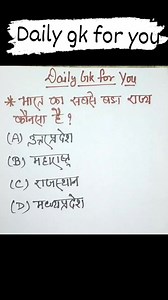 Daily gk for you
Daily Gk for You
* भारत का सबसे बडा राज्य
कौनसा है ?
(A) उत्तरप्रदेश
(B) महाराष्ट्र
(C) राजस्थान
(D) मध्यप्रदेश